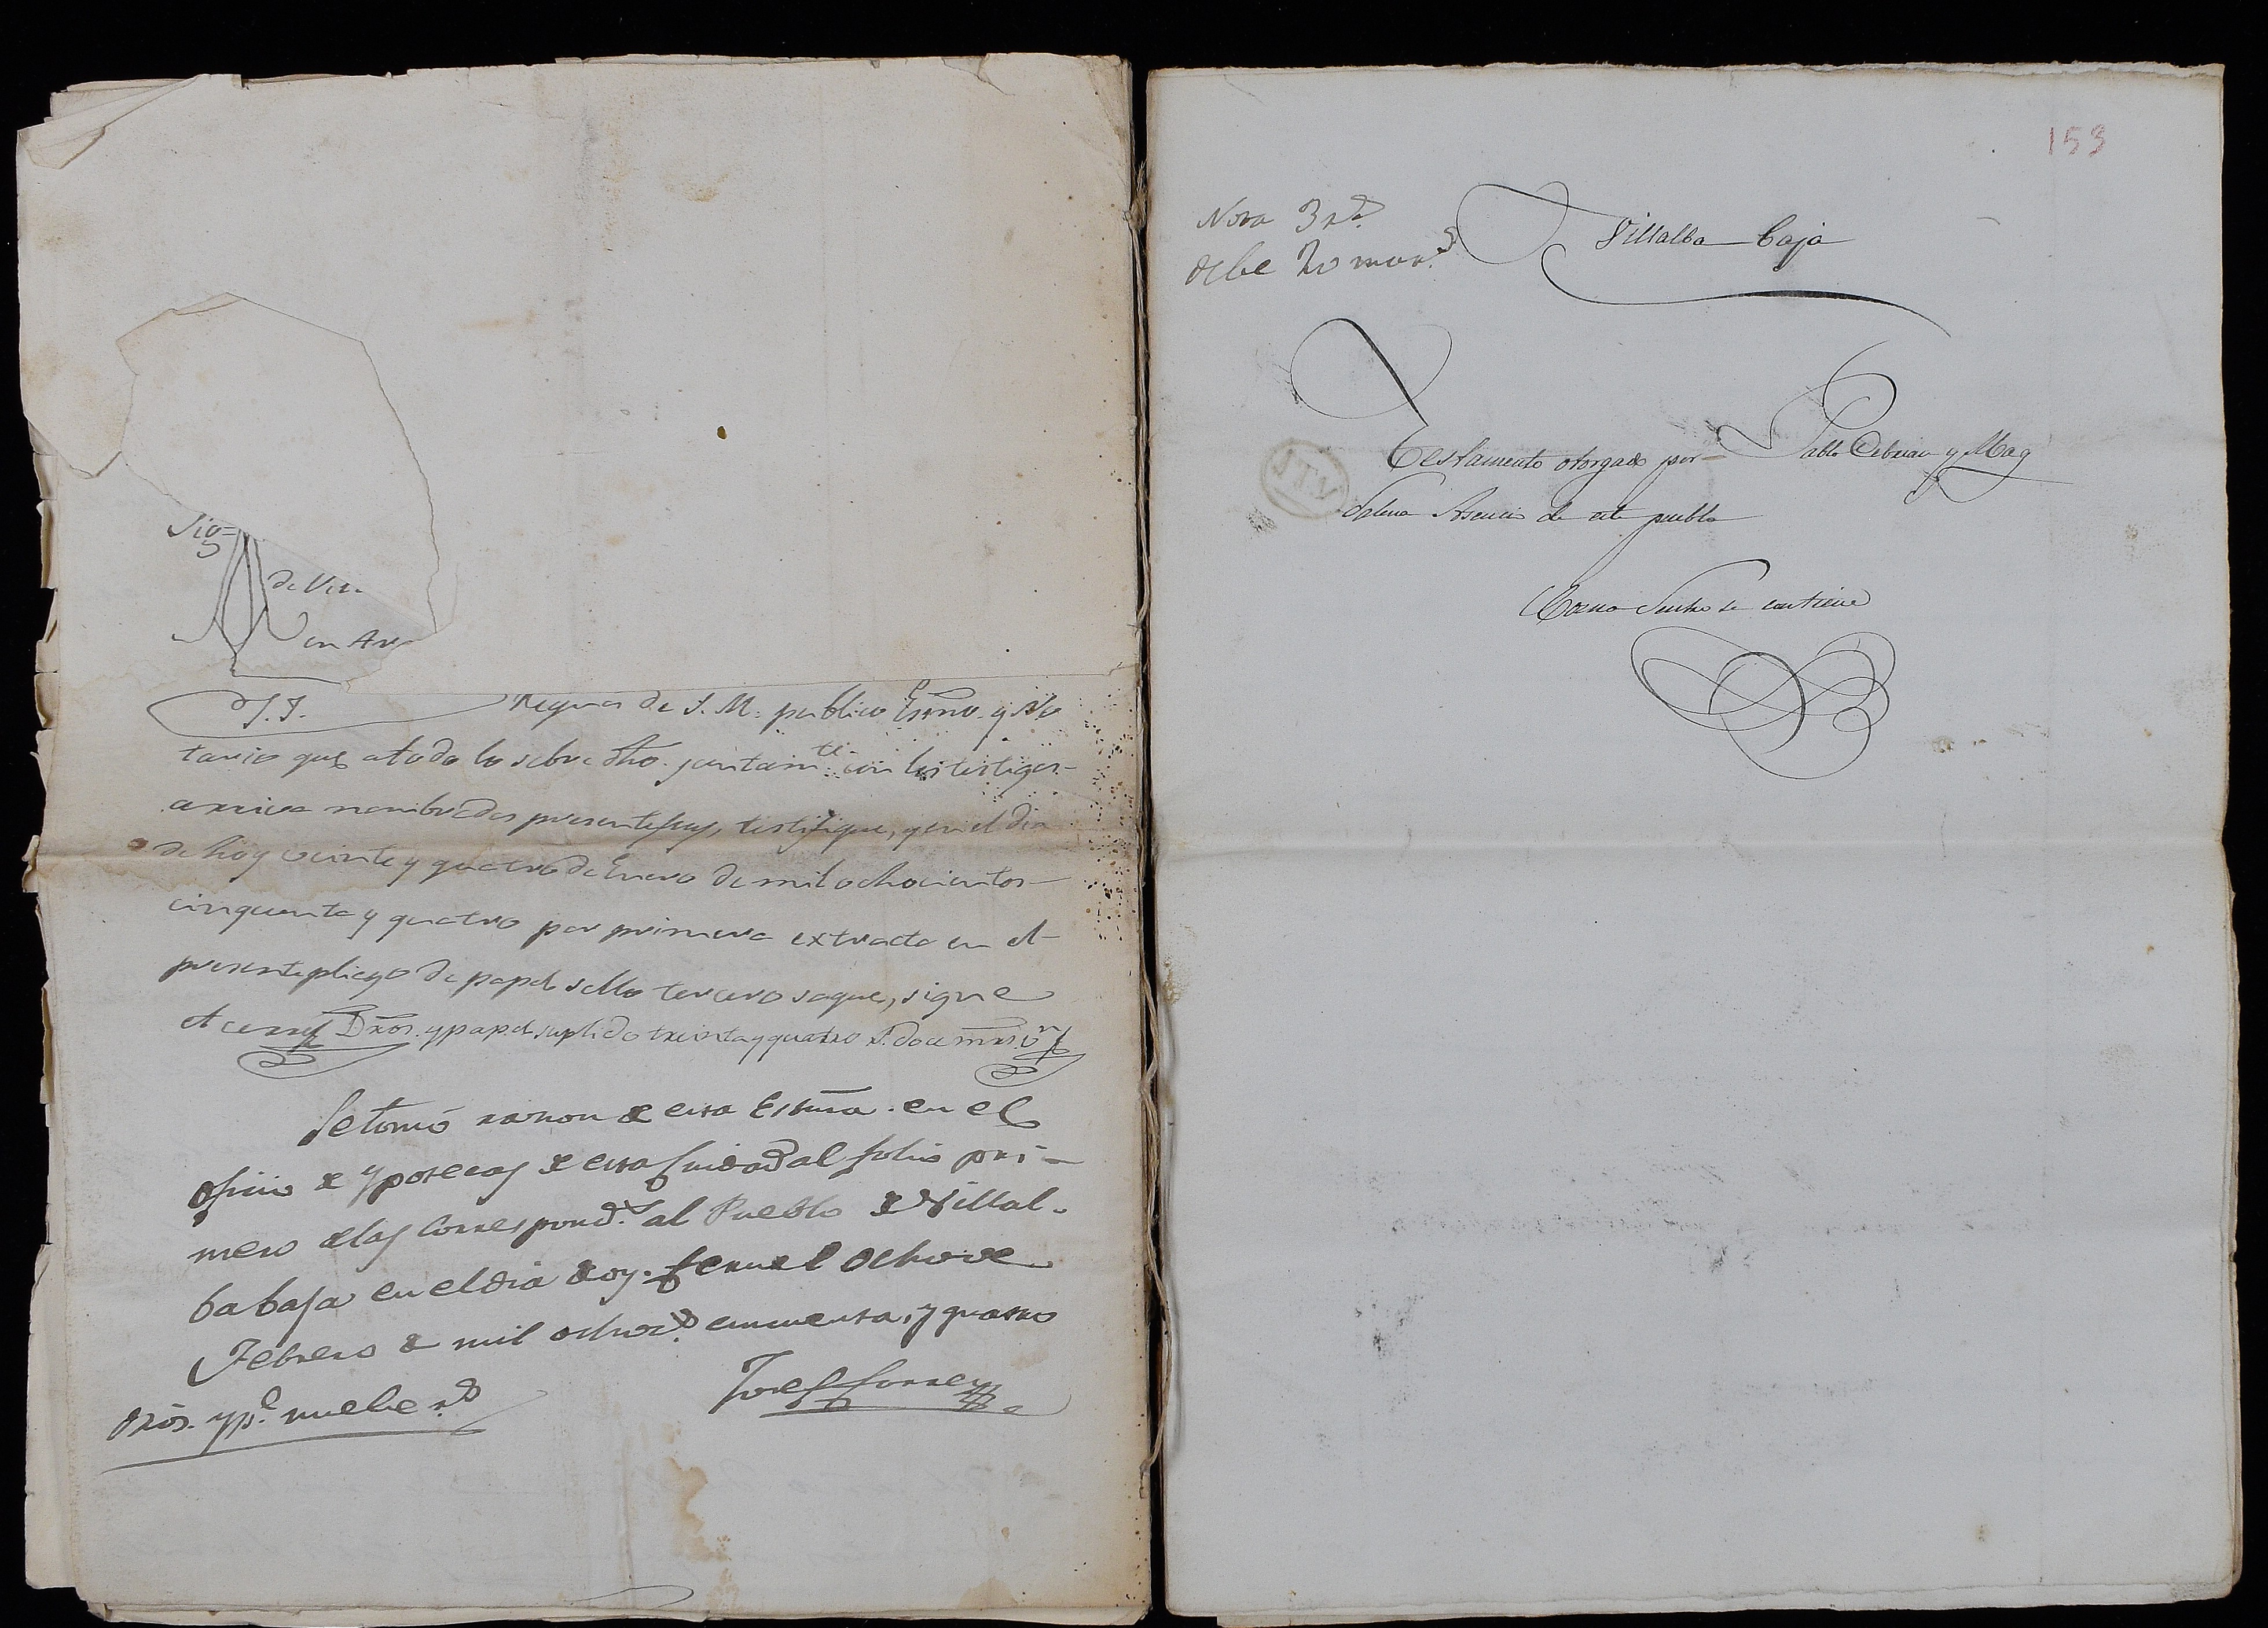 Sig=
de Vi
en Ar
S.S. Regnos de S. M. publico Esno. y No
tario que a todo lo sobre dho. juntamte. con los testigos
arriva nombrados presente fuy, testifique, y en el dia
de hoy veinte y quatro de Enero de mil ochocientos
cinquenta y quatro por primera extracta en el
presente pliego de papel sello tercero saque, signe
et cerre Dros. y papel suplido treinta y quatro r. doce mrs. vn
Se tomó razon de esta Esna. en el
oficio de Ypotecas de esta Ciudad al folio pri-
mero de las correspondtes. al Pueblo de Villal-
ba baja en el dia de oy. Teruel ocho de
Febrero de mil ochocs. cincuenta, y quatro
Josef Torres
Dros. y pl. nuebe rs
153
Nova 3 rs.
debe 20 mars.
Villalba baja
Testamento otorgado por Pablo Cebrian y Mag
dalena Asencio de este pueblo
Como dentro se contiene